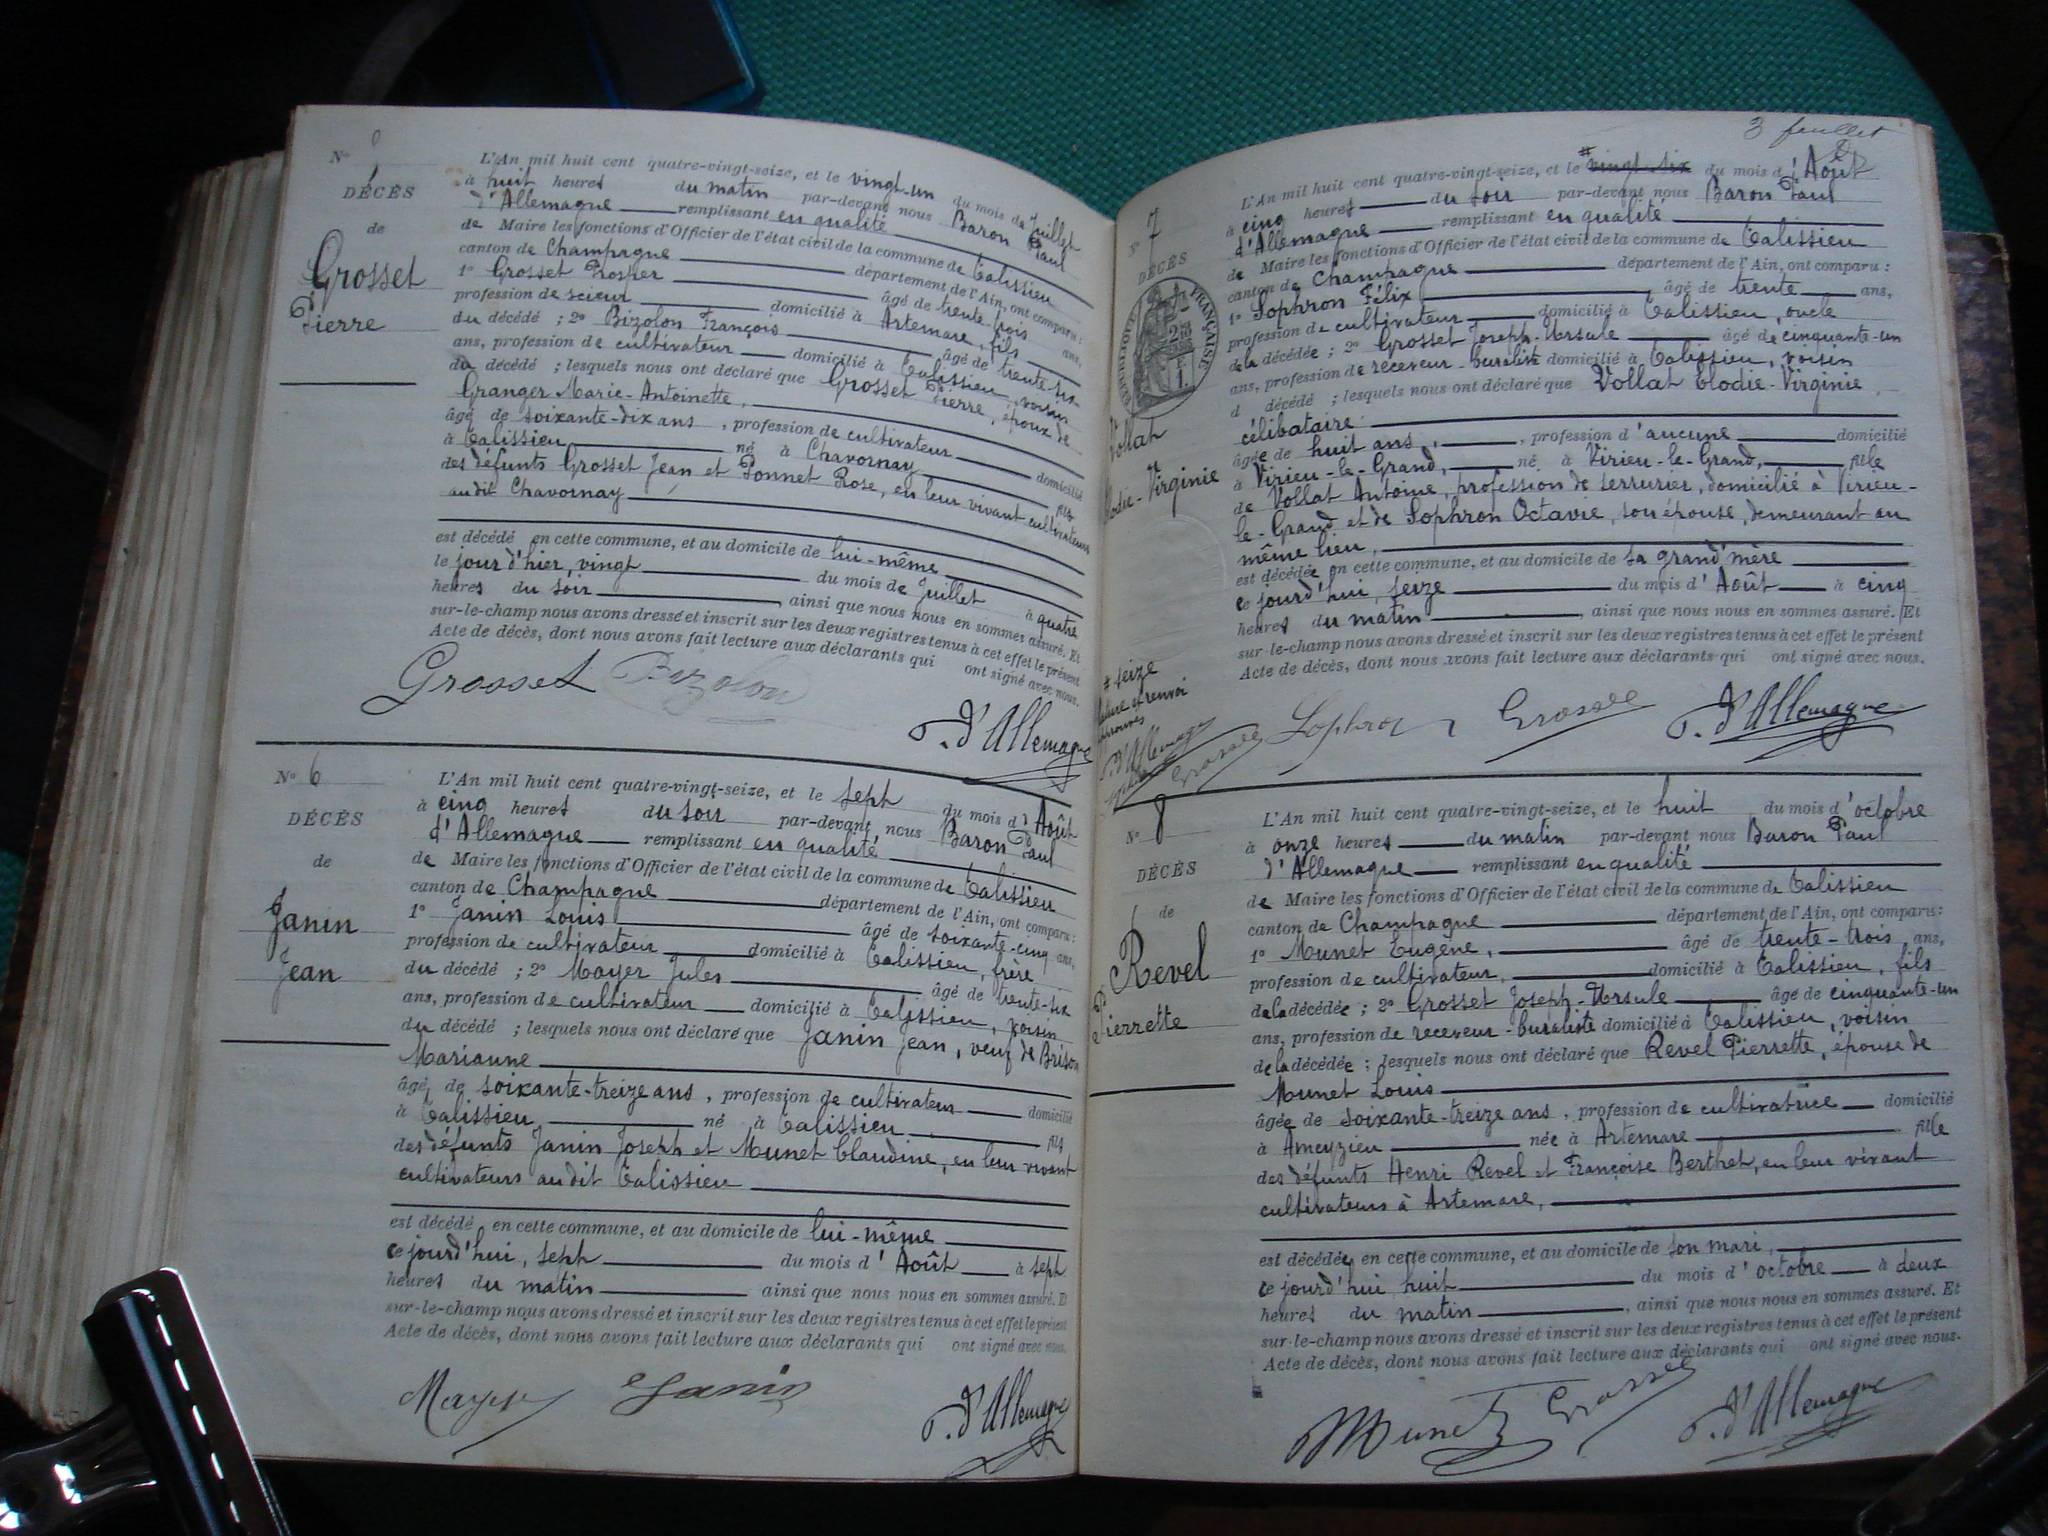 N° 5
DÉCÈS
de
Grosset
Pierre
L'An mil huit cent quatre-vingt-seize, et le vingt-un du mois de Juillet
à huit heures du matin par-devant nous Baron Paul
d'Allemagne remplissant en qualité
de Maire les fonctions d'Officier de l'état civil de la commune de Talissieu
canton de Champagne département de l'Ain, ont comparu :
1° Grosset Prosper âgé de trente-trois ans,
profession de scieur domicilié à Artemare, fils
du décédé ; 2° Bizolon François âgé de trente-six
ans, profession de cultivateur domicilié à Talissieu, voisin
du décédé ; lesquels nous ont déclaré que Grosset Pierre, époux de
Granger Marie-Antoinette,
âgé de soixante-dix ans, profession de cultivateur domicilié
à Talissieu né à Chavornay fils
des défunts Grosset Jean et Ponnet Rose, en leur vivant cultivateurs
audit Chavornay
est décédé en cette commune, et au domicile de lui-même
le jour d'hier, vingt du mois de Juillet à quatre
heures du soir, ainsi que nous nous en sommes assuré. Et
sur-le-champ nous avons dressé et inscrit sur les deux registres tenus à cet effet le présent
Acte de décès, dont nous avons fait lecture aux déclarants qui ont signé avec nous.
Grosset Bizolon
P. d'Allemagne
N° 6
DÉCÈS
de
Janin
Jean
L'An mil huit cent quatre-vingt-seize, et le sept du mois d'Août
à cinq heures du soir par-devant nous Baron Paul
d'Allemagne remplissant en qualité
de Maire les fonctions d'Officier de l'état civil de la commune de Talissieu
canton de Champagne département de l'Ain, ont comparu :
1° Janin Louis âgé de soixante-cinq ans,
profession de cultivateur domicilié à Talissieu, frère
du décédé ; 2° Mayer Jules âgé de trente-six
ans, profession de cultivateur domicilié à Talissieu, voisin
du décédé ; lesquels nous ont déclaré que Janin Jean, veuf de Brison
Marianne
âgé de soixante-treize ans, profession de cultivateur domicilié
à Talissieu né à Talissieu fils
des défunts Janin Joseph et Munet Claudine, en leur vivant
cultivateurs audit Talissieu
est décédé en cette commune, et au domicile de lui-même
ce jourd'hui, sept du mois d'Août à sept
heures du matin ainsi que nous nous en sommes assuré. Et
sur-le-champ nous avons dressé et inscrit sur les deux registres tenus à cet effet le présent
Acte de décès, dont nous avons fait lecture aux déclarants qui ont signé avec nous.
Mayer Janin
P. d'Allemagne
3 feuillet
N° 7
DÉCÈS
RÉPUBLIQUE FRANÇAISE
Vollat
lodie-Virginie
L'An mil huit cent quatre-vingt-seize, et le # vingt-six du mois d'Août
à cinq heures du soir par-devant nous Baron Paul
d'Allemagne remplissant en qualité
de Maire les fonctions d'Officier de l'état civil de la commune de Talissieu
canton de Champagne département de l'Ain, ont comparu :
1° Sophron Félix âgé de trente ans,
profession de cultivateur domicilié à Talissieu, oncle
de la décédée ; 2° Grosset Joseph-Ursule âgé de cinquante-un
ans, profession de receveur-buraliste domicilié à Talissieu, voisin
d décédé ; lesquels nous ont déclaré que Vollat Clodie-Virginie
célibataire
âgée de huit ans, profession d'aucune domicilié
à Virieu-le-Grand, né à Virieu-le-Grand, fille
de Vollat Antoine, profession de serrurier, domicilié à Virieu-
le-Grand et de Sophron Octavie, son épouse, demeurant au
même lieu,
est décédée en cette commune, et au domicile de sa grand'mère
ce jourd'hui, seize du mois d'Août à cinq
heures du matin, ainsi que nous nous en sommes assuré. Et
sur-le-champ nous avons dressé et inscrit sur les deux registres tenus à cet effet le présent
Acte de décès, dont nous avons fait lecture aux déclarants qui ont signé avec nous.
# seize
rature et renvoi
approuvés
P. d'Allemagne
Grosset Sophron Grosset P. d'Allemagne
N° 8
DÉCÈS
de
Revel
Pierrette
L'An mil huit cent quatre-vingt-seize, et le huit du mois d'octobre
à onze heures du matin par-devant nous Baron Paul
d'Allemagne remplissant en qualité
de Maire les fonctions d'Officier de l'état civil de la commune de Talissieu
canton de Champagne département de l'Ain, ont comparu :
1° Munet Eugène, âgé de trente-trois ans,
profession de cultivateur, domicilié à Talissieu, fils
de la décédée ; 2° Grosset Joseph-Ursule âgé de cinquante-un
ans, profession de receveur-buraliste domicilié à Talissieu, voisin
de la décédée ; lesquels nous ont déclaré que Revel Pierrette, épouse de
Munet Louis
âgée de soixante-treize ans, profession de cultivatrice domicilié
à Ameyzieu née à Artemare fille
des défunts Henri Revel et Françoise Berthet, en leur vivant
cultivateurs à Artemare,
est décédée en cette commune, et au domicile de son mari,
ce jourd'hui huit du mois d'octobre à deux
heures du matin, ainsi que nous nous en sommes assuré. Et
sur-le-champ nous avons dressé et inscrit sur les deux registres tenus à cet effet le présent
Acte de décès, dont nous avons fait lecture aux déclarants qui ont signé avec nous.
Munet Grosset P. d'Allemagne